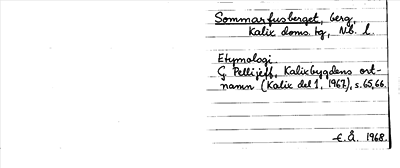 Sommarfusberget, berg,
Kalix doms. tg, Nb. l.
Etymologi
G Pellijeff, Kalixbygdens ort-
namn (Kalix del 1, 1967), s. 65, 66.
E. Å. 1968.